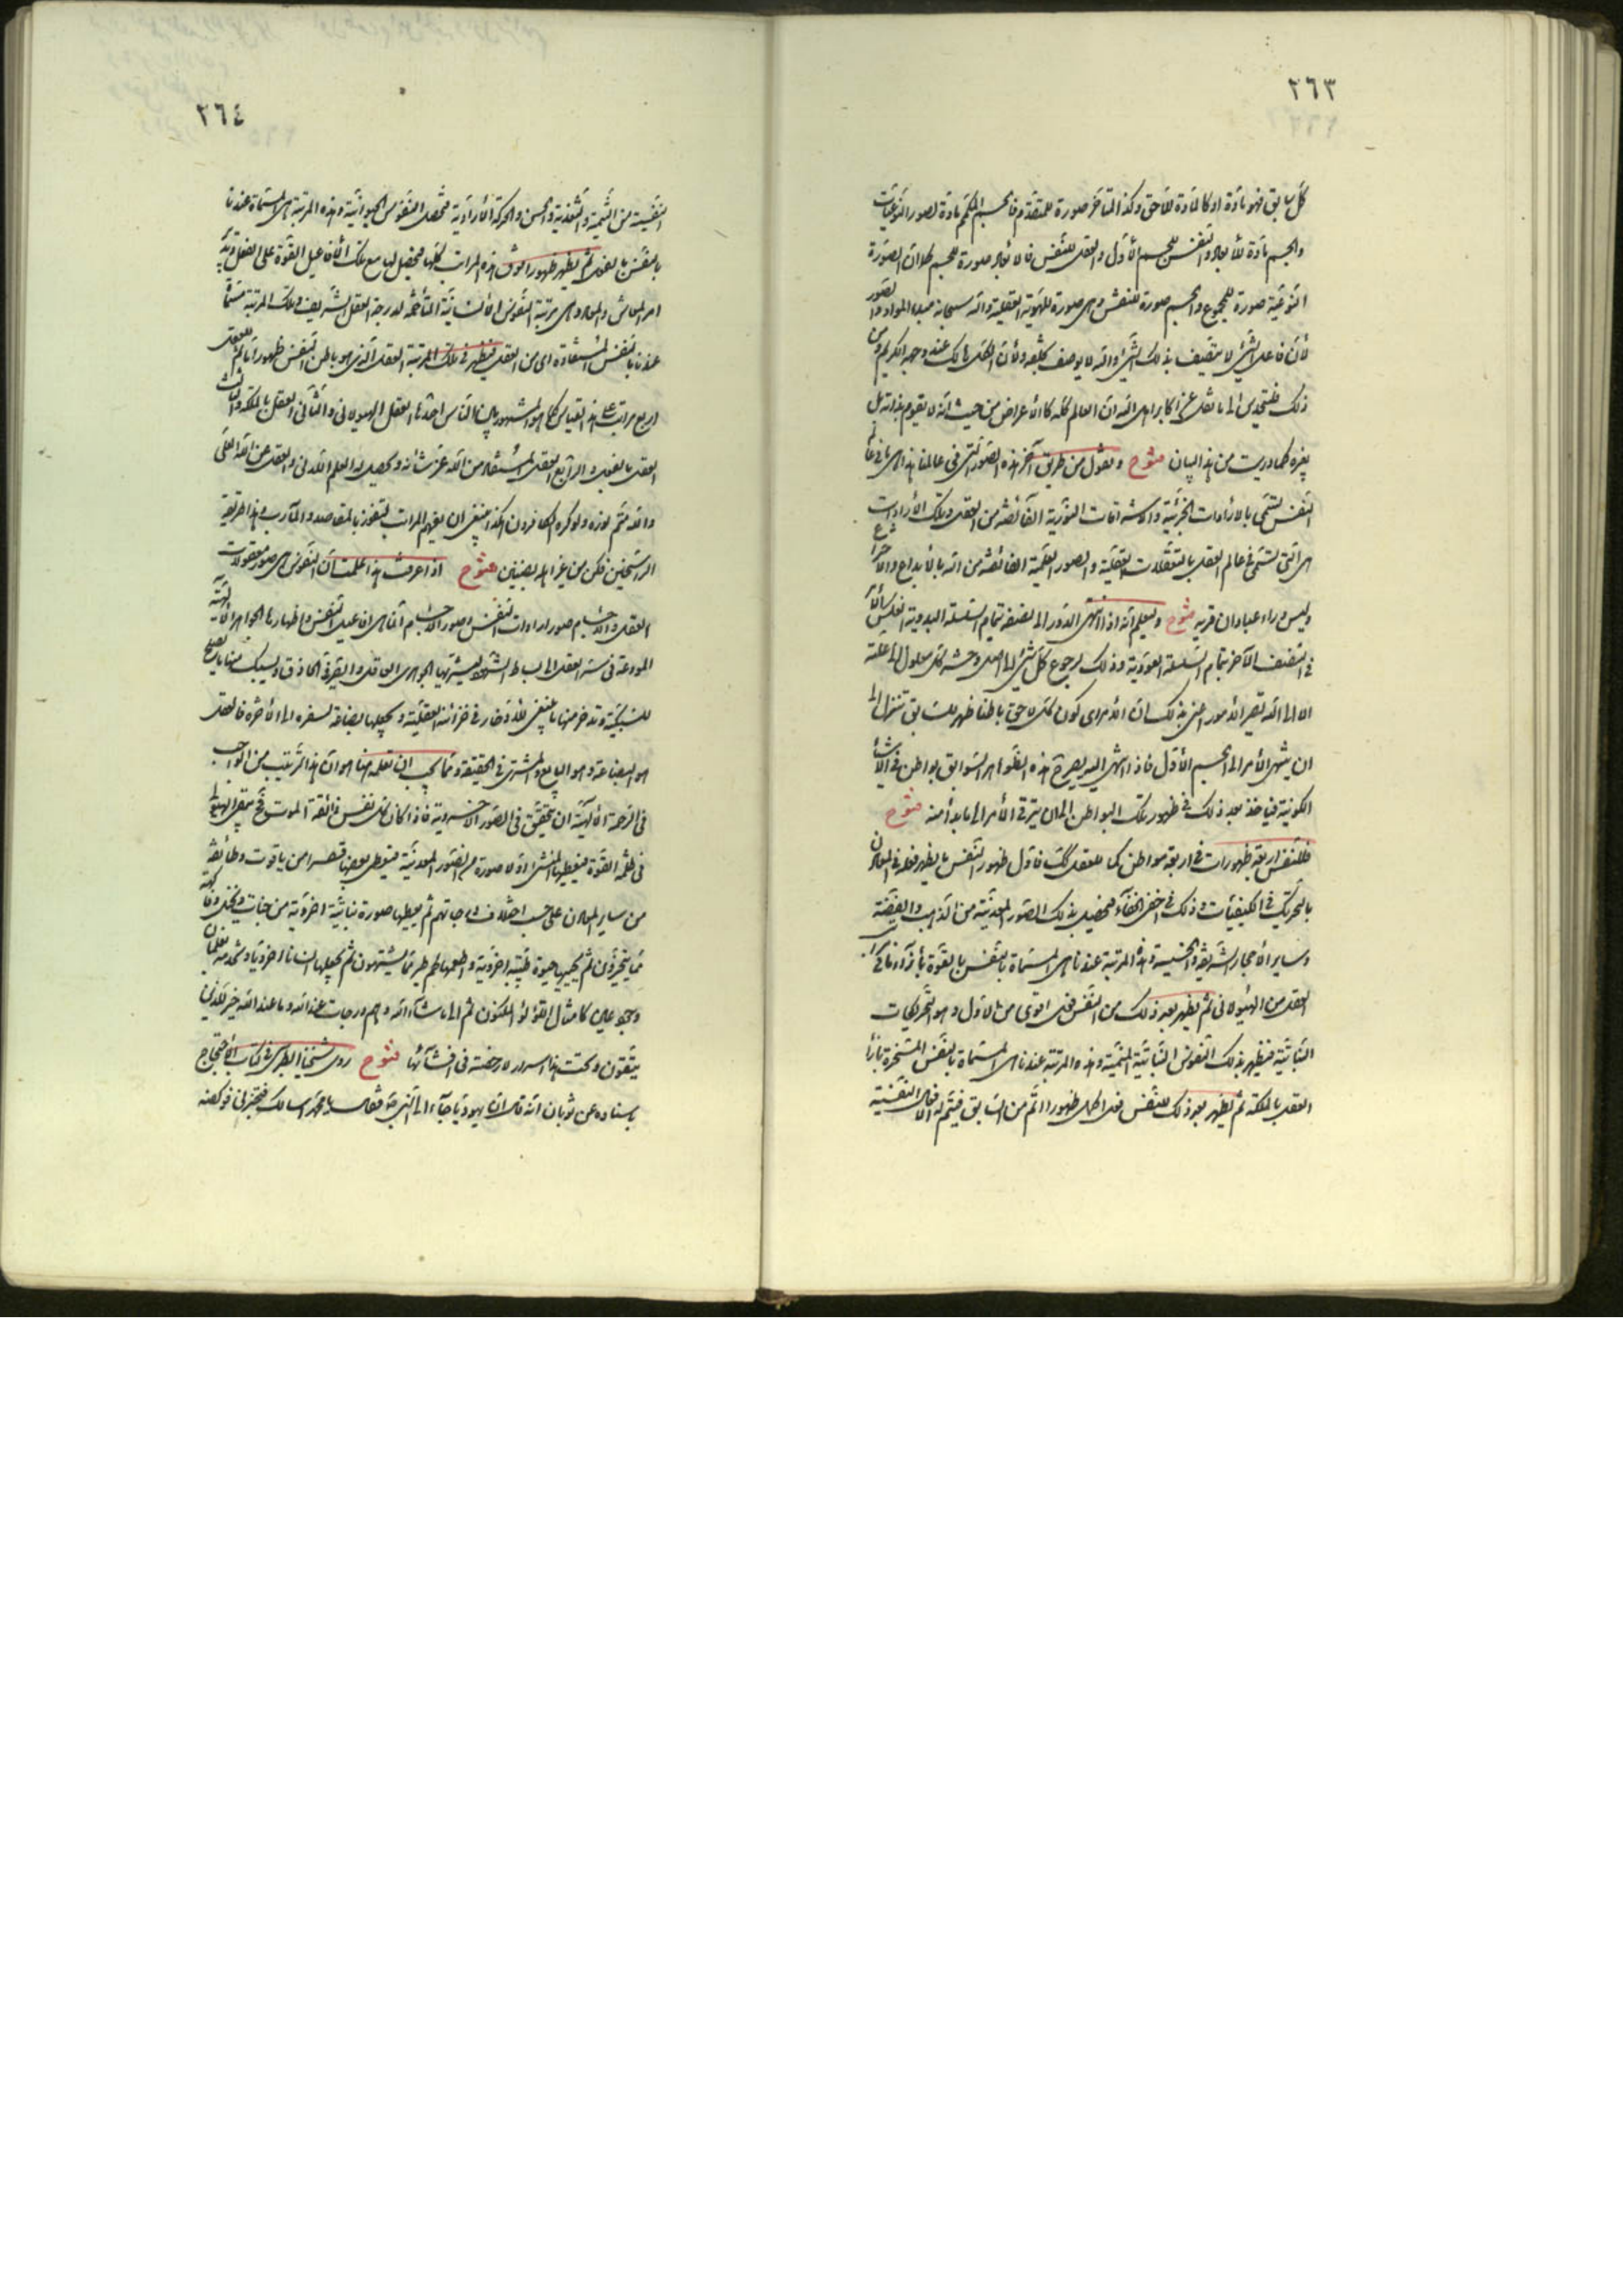 ٢٦٣
كلّ سابق فهو مادّة او كالمادّة للاحق وكذا المتأخر صورة للمتقدّم فالجسم مادّة لصور النوعيّات
والجسم مادّة للأبعاد والنفس للجسم الأوّل والعقل للنفس فالابعاد صورة للجسم كما انّ الصورة
النوعيّة صورة للمجموع والجسم صورة للنفس وهي صورة للهويّة العقلية والله سبحانه مبدء المواد والصور
لأنّ فاعل الشيء لا يتّصف بذلك الشيء والله لا يوصف بخلقه ولأنّ الكلّ هالك عند وجهه الكريم ومن
ذلك فلتحدس الى ما نقل عن اكابر اهل الله انّ العالم كلّه كالأعراض من حيث انّه لا يقوم بذاته بل
بغيره كما دريت من هذا البيان مشرح ونقول من طريق آخر هذه الصور التي في عالمنا هذا هي في عالم
النفس تسمّى بالارادات الجزئيّة والاشراقات النوريّة الفائضة من العقل وتلك الأرادات
هي التي تسمّى في عالم العقل بالتعقّلات العقليّة والصور العلميّة الفائضة من الله بالأبداع والاختراع
وليس وراء عبادان قرية مشرح وليعلم انّه اذا انتهى الدور الى نصفه بتمام السلسلة البدويّة انعكس
في النصف الآخر بتمام السلسلة العوديّة وذلك لرجوع كلّ شيء الى اصله وحشر كلّ معلول الى علّته
الا الى الله تصير الأمور اعني بذلك انّ الأمر اي كون كلّ لاحق باطنا ظهر للسابق تنزل الى
ان ينتهي الأمر الى الجسم الأوّل فاذا انتهى اليه يصير هذه الظواهر السوابق بواطن في الأشياء
الكونية فيأخذ بعد ذلك في ظهور تلك البواطن الى ان يترقى الأمر الى ما بدأ منه مشرح
فللنفس اربعة ظهورات في اربعة مواطن كما للعقل كك فأول ظهور النفس ما يظهر فعله في المعادن
بالتحريك في الكيفيّات وذلك في اخفى الخفاء فيحصل بذلك الصور المعدنيّة من الذهب والفضّة
وساير الأحجار الشريفة والخسيسة وهذه المرتبة عندنا هي المسماة بالنفس بالقوة بأزاء
العقل من الهيولاني ثم يظهر بعد ذلك من النفس فعل اقوى من الاوّل وهو التحريكات
النباتيّة فيظهر بذلك النفوس النباتيّة المنميّة وهذه المرتبة عندنا هي المسماة بالنفس المسخّرة بازاء
العقل بالملكة ثم يظهر بعد ذلك للنفس فعل اكمل ظهورا اتمّ من السابق فيتمّ له الأفاعيل النفسيّة
٢٦٤
النفسيّة من التنمية والتغذية والحسّ والحركة الأراديّة فتحصل النفوس الحيوانيّة وهذه المرتبة هي المسماة عندنا
بالنفس بالفعل ثم يظهر ظهورا فوق هذه المراتب كلّها فيحصل لها مع تلك الأفاعيل القوة على الفعل
امر المعاش والمعاد وهي مرتبة النفوس الأنسانيّة المتأخمة لدرجة العقل الشريف وتلك المرتبة مسماة
عندنا بالنفس المستفادة اي من العقل فيظهر في تلك المرتبة العقل الذي هو باطن النفس ظهورا تاما ثم للعقل
اربع مراتب على هذا القياس كما هو المشهور بين الناس احدها العقل الهيولاني والثاني العقل بالملكة والثالث
العقل بالفعل والرابع العقل المستفاد من الله عزّ شأنه ويحصل له العلم اللدني والعقل عن الله العليّ
والله متمّ نوره ولو كره الكافرون هكذا ينبغي ان يفهم المراتب لتفوز بالمقاصد والمآرب وهذا طريقة
الراسخين فكن من غير اهله بضنين مشرح اذا عرفت هذا علمت انّ النفوس هي صور معقولات
العقل والأجسام صور ارادات النفس وصور الأجسام انّما هي افاعيل النفس واظهارها الجواهر الألهيّة
المودعة في سرّ العقل الى بساط الشهود ليشتريها الجوهري العاقل والصيرفي الحاذق ويسبك منها ما يصلح
للسبيكة ويدخر منها ما ينبغي للأدّخار في خزائنه العقليّة ويجعلها بضاعة لسفره الى الآخرة فالعقل
هو البضاعة وهو البايع والمشتري في الحقيقة وممّا يجب ان تعلمه هنا هو انّ هذا الترتيب من الواجب
في الرحمة الألهيّة ان يتحقّق في الصور الأخرويّة فاذا كان كلّ نفس ذائقة الموت وتبقى الهيولى
في ظلمة القوة فيعطيها المنشئ اوّلا صورة من الصور المعدنيّة فيعطي بعضها قصرا من ياقوت وطائفة
من ساير المعادن على حسب اختلاف درجاتهم ثم يعطيها صورة نباتيّة اخرويّة من جنّات ونخل وفاكهة
ممّا يتخيّرون ثم يحييها حيوة طيّبة اخرويّة واطعمها لحم طير ممّا يشتهون ثم يجعلها انسانا اخرويّا وخدمه غلمان
وحور عين كأمثال اللؤلؤ المكنون ثم الى ما شاء الله وهم درجات عند الله وما عند الله خير للذين
يتّقون وتحت هذا سرّ لا رخصة في افشائها مشرح روى شيخنا الطبرسي في كتاب الأحتجاج
باسناده عن ثوبان انّه قال انّ يهوديّا جاء الى النبي ص فقال يا محمد اسألك فتخبرني فركضه